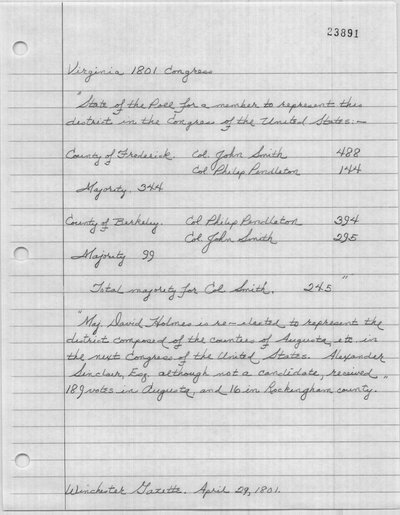 23891
Virginia 1801 Congress
"State of the Poll for a member to represent this
district in the Congress of the United States:—
County of Frederick. Col. John Smith 488
Col Philip Pendleton 144
Majority. 344
County of Berkeley. Col Philip Pendleton 394
Col. John Smith 295
Majority 99
Total majority for Col Smith. 245"
"Maj. David Holmes is re-elected to represent the
district composed of the counties of Augusta, etc. in
the next Congress of the United States. Alexander
Sinclair, Esq. although not a candidate, received
189 votes in Augusta, and 16 in Rockingham county."
Winchester Gazette. April 29, 1801.